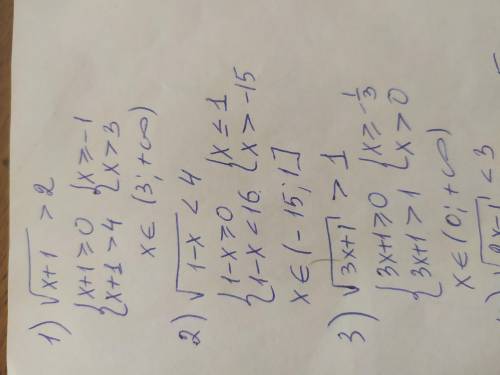 1) √x+1 > 2
{x+1 ≥ 0 {x ≥ -1
{x+1 > 4 {x > 3
x ∈ (3; +∞)
2) √1-x < 4
{1-x ≥ 0 {x ≤ 1
{1-x < 16 {x > -15
x ∈ (-15; 1]
3) √3x+1 > 1
{3x+1 ≥ 0 {x ≥ -1/3
{3x+1 > 1 {x > 0
x ∈ (0; +∞)
< 3